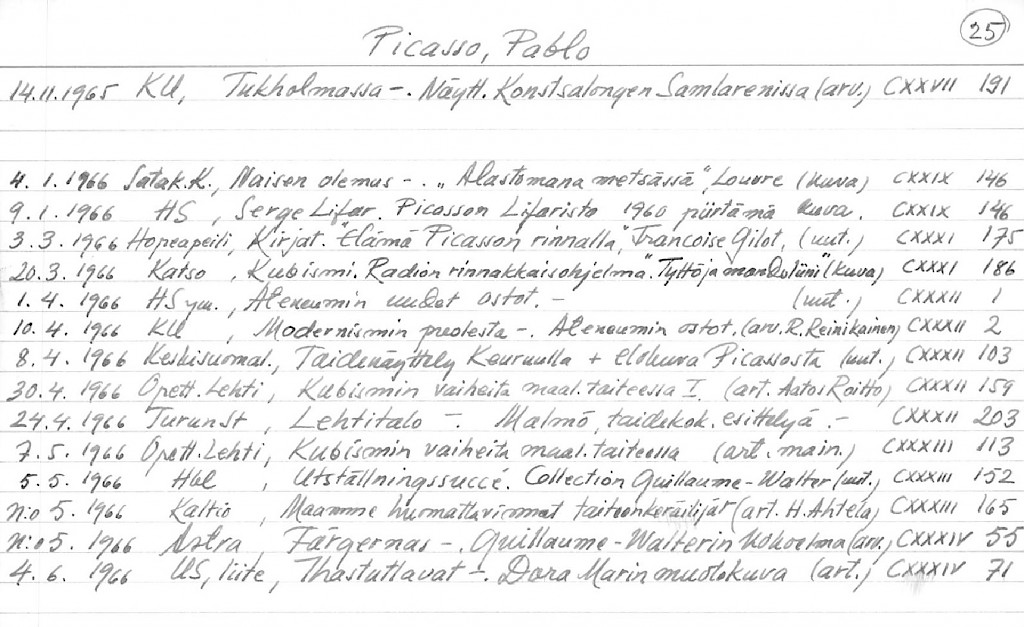 25
Picasso, Pablo
14.11.1965 KU, Tukholmassa -. Näytt. Konstsalongen Samlarenissa (arv.) CXXVII 191
4. 1. 1966 Satak.K., Naisen olemus -. "Alastomana metsässä", Louvre (kuva) CXXIX 146
9. 1. 1966 HS, Serge Lifar. Picasson Lifarista 1960 piirtämä kuva. CXXIX 146
3. 3. 1966 Hopeapeili, Kirjat. "Elämä Picasson rinnalla", Francoise Gilot, (uut.) CXXXI 175
20. 3. 1966 Katso, Kubismi. Radion rinnakkaisohjelma. "Tyttö ja mandoliini" (kuva) CXXXI 186
1. 4. 1966 HS ym., Ateneumin uudet ostot. - (uut.) CXXXII 1
10. 4. 1966 KU, Modernismin puolesta -. Ateneumin ostot. (arv. R. Reinikainen) CXXXII 2
8. 4. 1966 Keskisuomal., Taidenäyttely Keuruulla + elokuva Picassosta (uut.) CXXXII 103
30. 4. 1966 Opett. Lehti, Kubismin vaiheita maal.taiteessa I. (art. Aatos Raitto) CXXXII 159
24. 4. 1966 TurunSt, Lehtitalo -. Malmö, taidekok. esittelyä. - CXXXII 203
7. 5. 1966 Opett. Lehti, Kubismin vaiheita maal.taiteessa (art. main.) CXXXIII 113
5. 5. 1966 Hbl, Utställningssuccé. Collection Guillaume-Walter (uut.) CXXXIII 152
n:o 5. 1966 Kaltio, Maamme huomattavimmat taiteenkeräilijät (art. H. Ahtela) CXXXIII 165
n:o 5. 1966 Astra, Färgernas -. Guillaume-Walterin kokoelma (arv.) CXXXIV 55
4. 6. 1966 US, liite, Ihastuttavat -. Dora Marin muotokuva (art.) CXXXIV 71